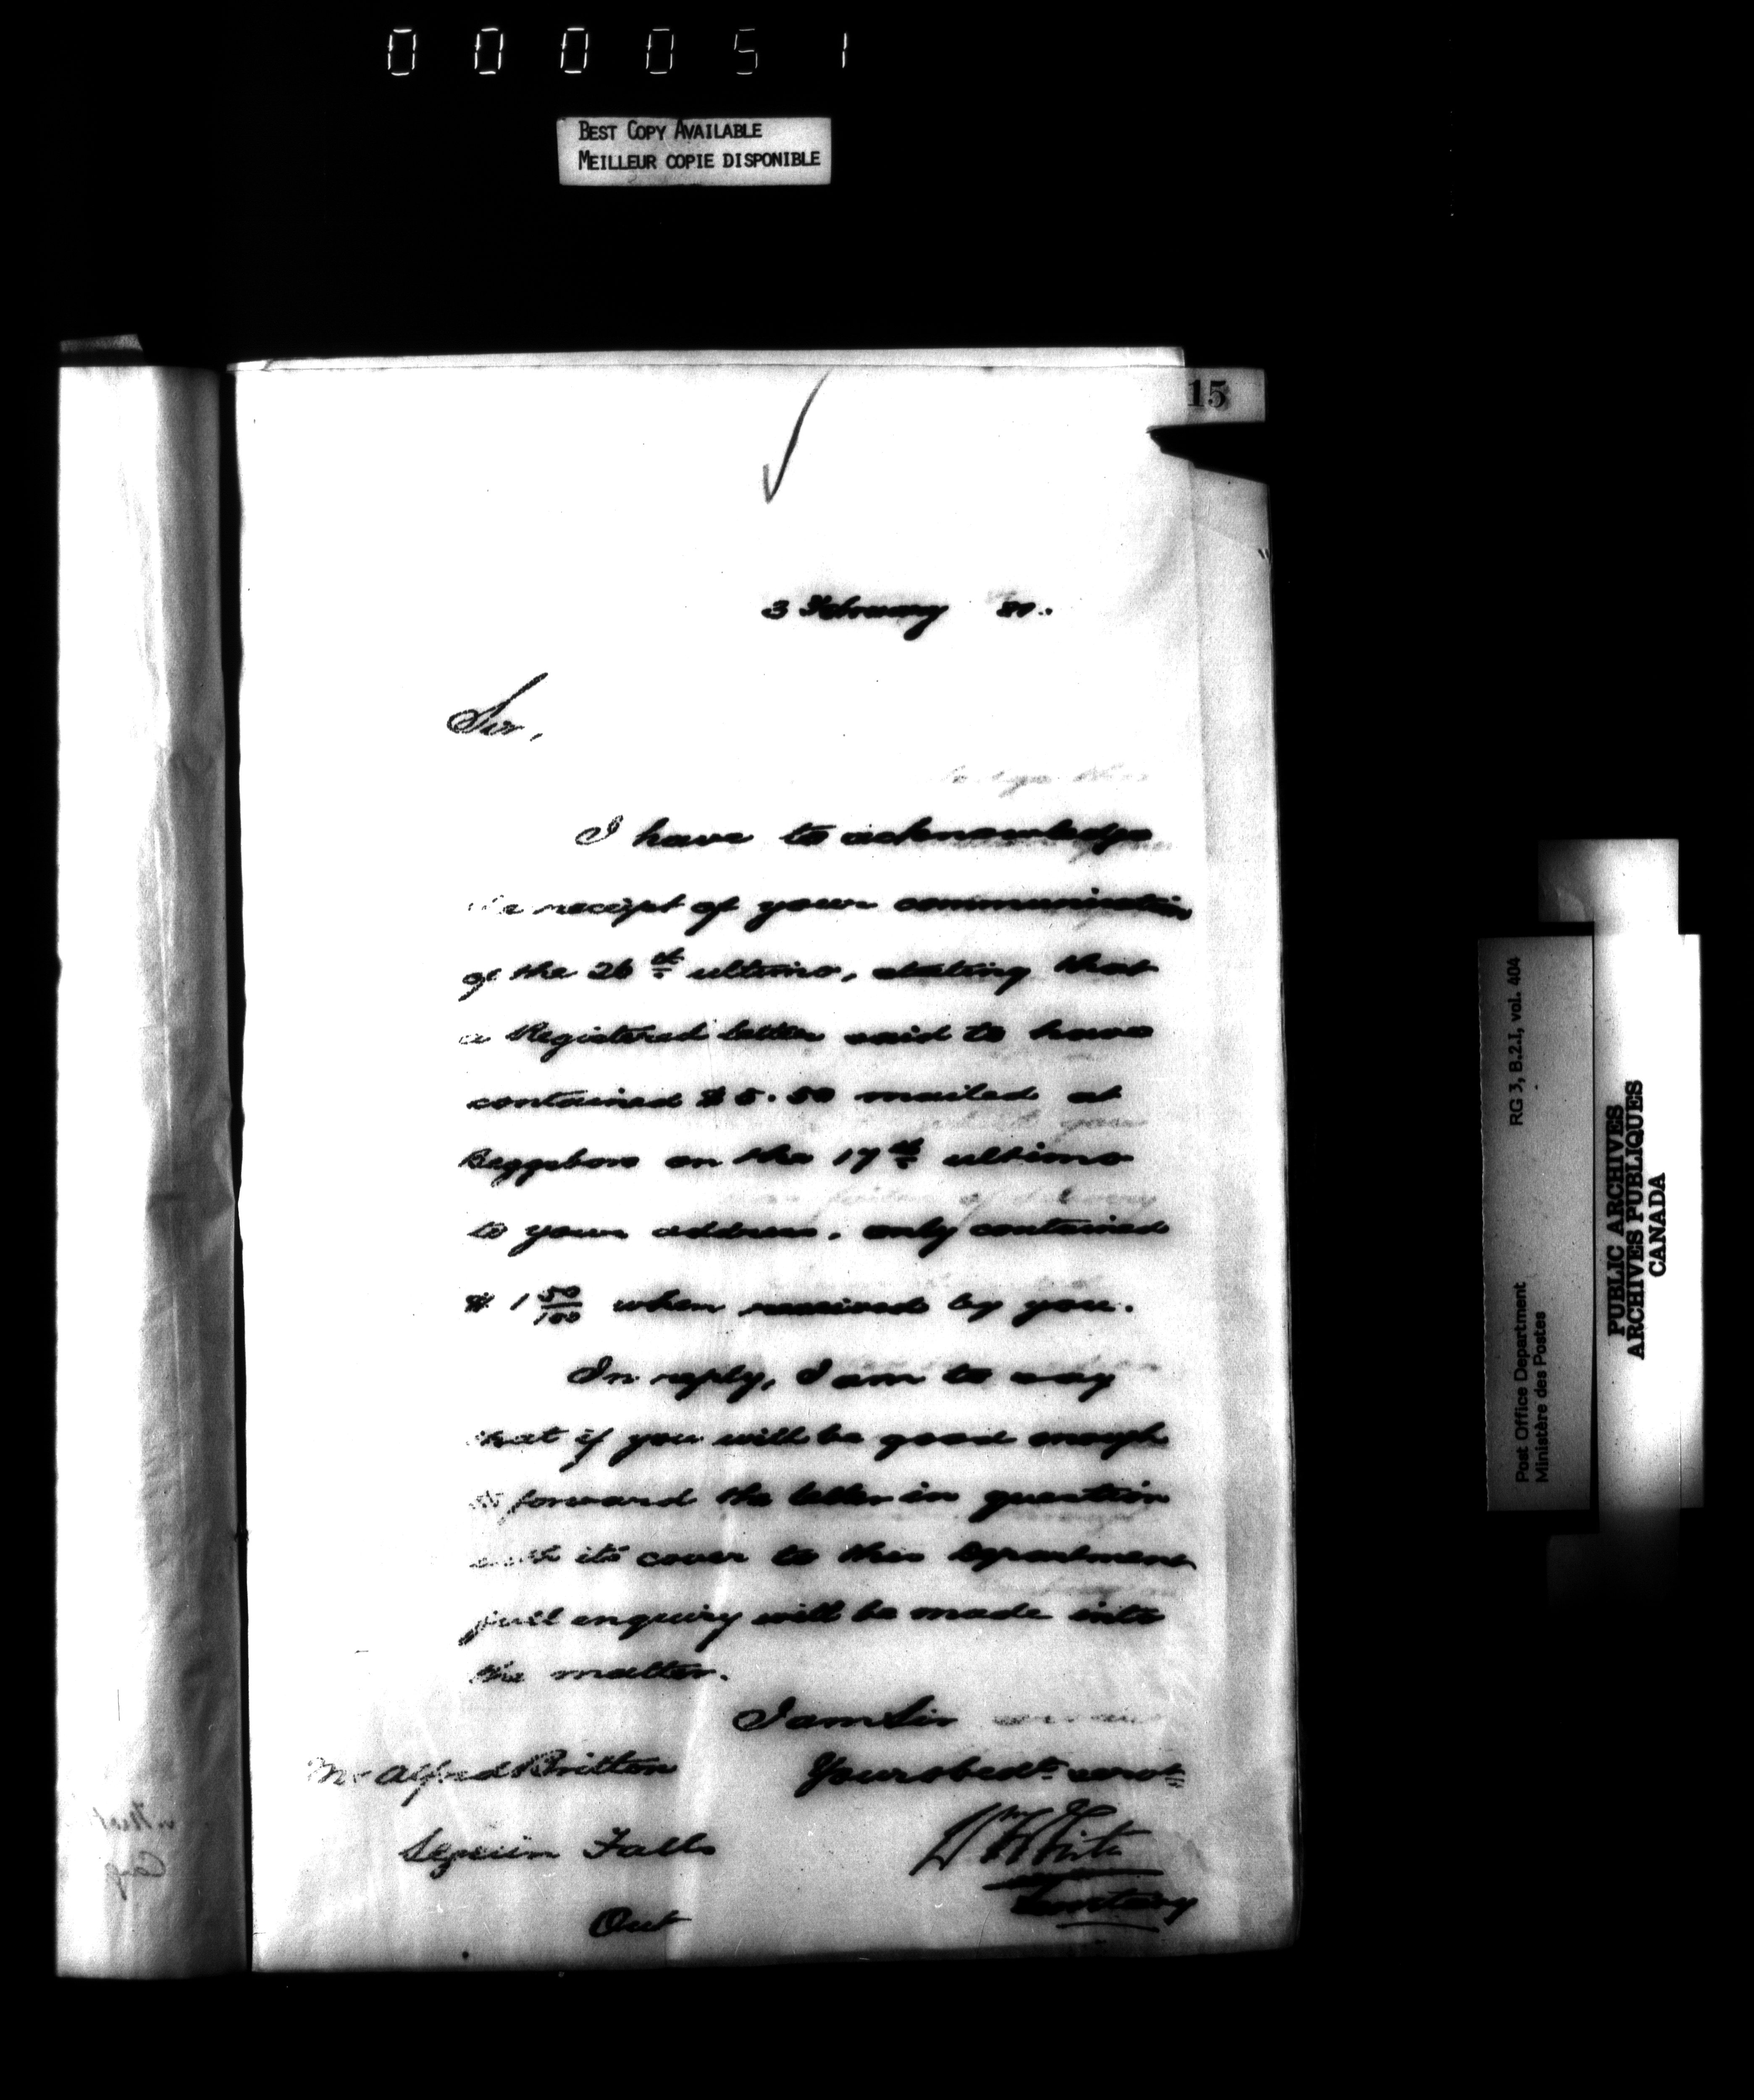 000051
BEST COPY AVAILABLE
MEILLEUR COPIE DISPONIBLE
15
3 February 80.
Sir,
I have to acknowledge
the receipt of your communication
of the 26th ultimo, stating that
a Registered letter said to have
contained $5.50 mailed at
Beggsboro on the 17th ultimo
to your address, only contained
$1 50/100 when received by you.
In reply, I am to say
that if you will be good enough
to forward the letter in question
with its cover to this Department
full enquiry will be made into
the matter.
I am Sir
Mr Alfred Britton
Your obedt servt
Seguin Falls
Wm White
Secretary
Ont
RG 3, B.2.I, vol. 404
Post Office Department
Ministère des Postes
PUBLIC ARCHIVES
ARCHIVES PUBLIQUES
CANADA